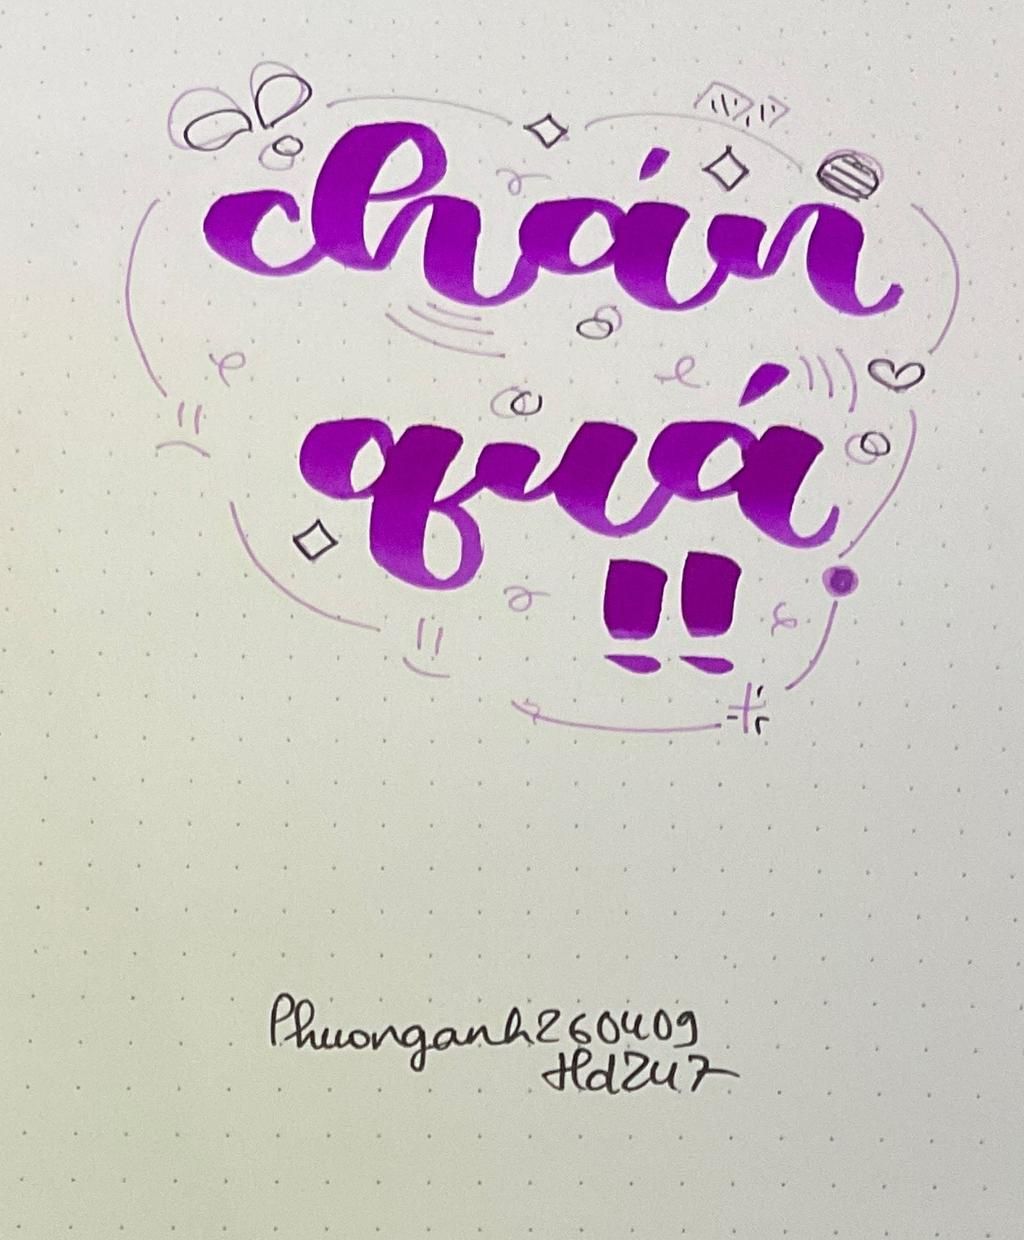 chán
quá
!!
Phuonganh260409
Hd247